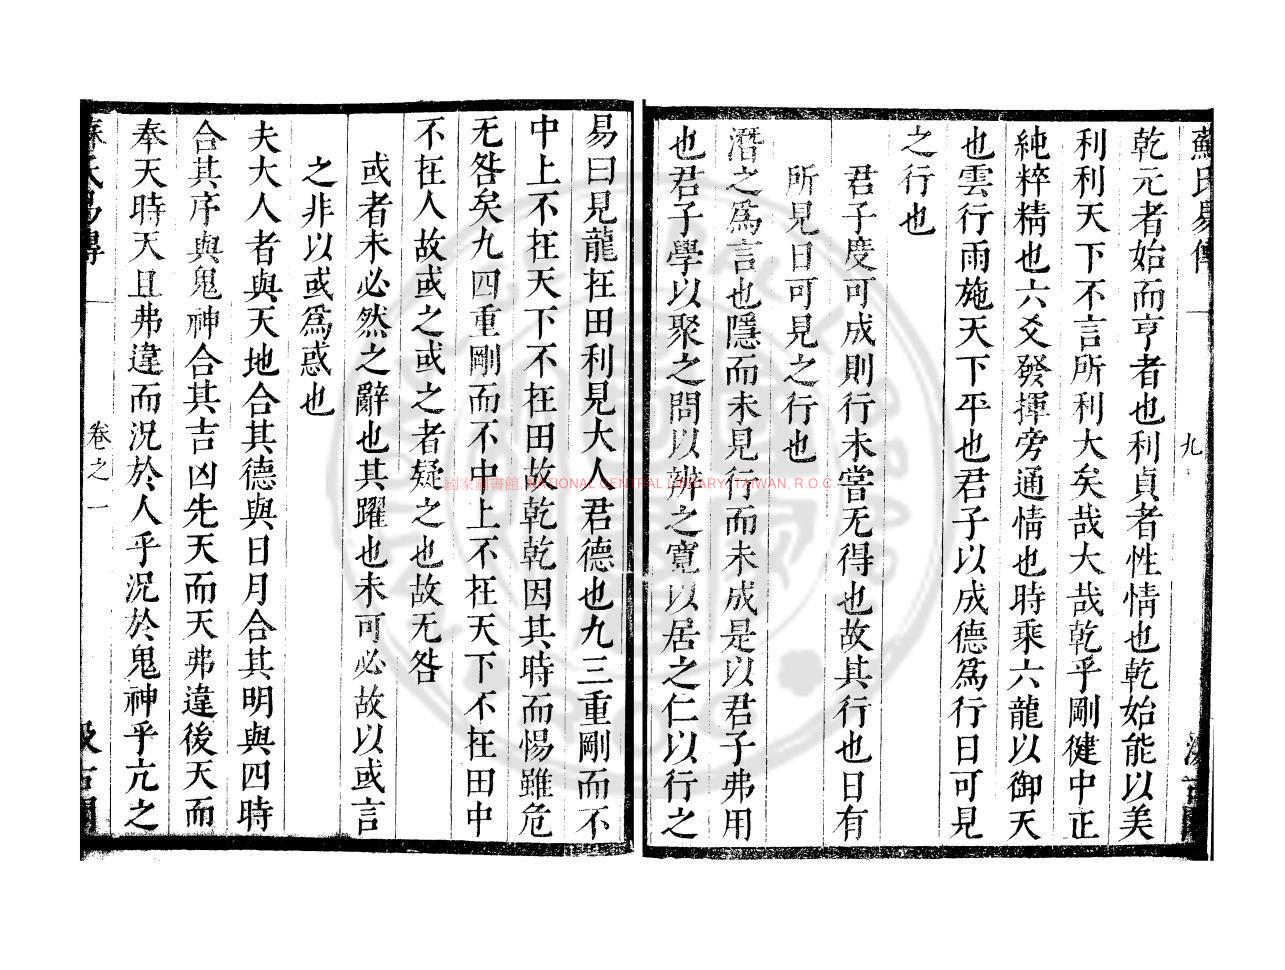 蘇氏易傳
九
汲古閣
乾元者始而亨者也利貞者性情也乾始能以美
利利天下不言所利大矣哉大哉乾乎剛健中正
純粹精也六爻發揮旁通情也時乘六龍以御天
也雲行雨施天下平也君子以成德爲行日可見
之行也
君子度可成則行未嘗无得也故其行也日有
所見日可見之行也
潛之爲言也隱而未見行而未成是以君子弗用
也君子學以聚之問以辨之寬以居之仁以行之
易曰見龍在田利見大人君德也九三重剛而不
中上不在天下不在田故乾乾因其時而惕雖危
无咎矣九四重剛而不中上不在天下不在田中
不在人故或之或之者疑之也故无咎
或者未必然之辭也其躍也未可必故以或言
之非以或爲惑也
夫大人者與天地合其德與日月合其明與四時
合其序與鬼神合其吉凶先天而天弗違後天而
奉天時天且弗違而況於人乎況於鬼神乎亢之
蘇氏易傳
卷之一
汲古閣
國家圖書館 NATIONAL CENTRAL LIBRARY, TAIWAN, R.O.C